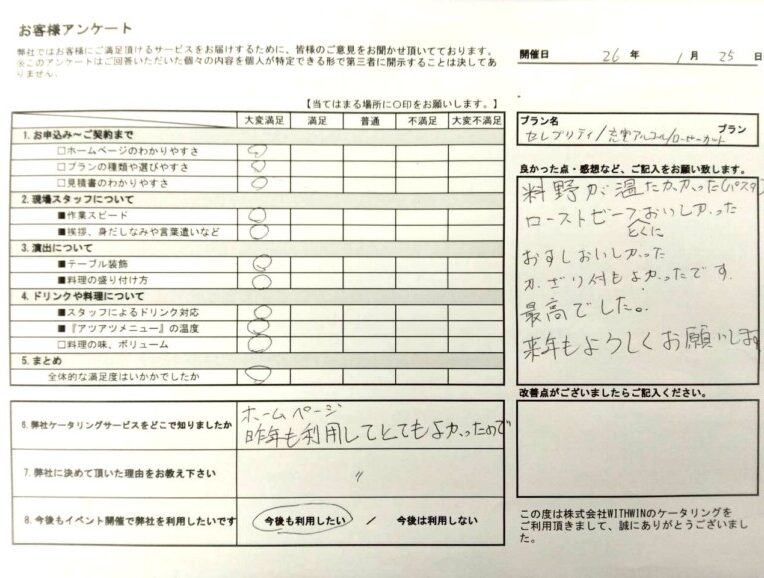 お客様アンケート
弊社ではお客様にご満足頂けるサービスをお届けするために、皆様のご意見をお聞かせ頂いてております。
※このアンケートはご回答いただいた個々の内容を個人が特定できる形で第三者に開示することは決してあ
りません。
開催日 26 年 1 月 25 日
【当てはまる場所に〇印をお願いします。】
大変満足 満足 普通 不満足 大変不満足
1. お申込み～ご契約まで
□ホームページのわかりやすさ
□プランの種類や選びやすさ
□見積書のわかりやすさ
2. 現場スタッフについて
■作業スピード
■挨拶、身だしなみや言葉遣いなど
3. 演出について
■テーブル装飾
■料理の盛り付け方
4. ドリンクや料理について
■スタッフによるドリンク対応
■『アツアツメニュー』の温度
□料理の味、ボリューム
5. まとめ
全体的な満足度はいかがでしたか
6. 弊社ケータリングサービスをどこで知りましたか
ホームページ
昨年も利用してとてもよかったので
7. 弊社に決めて頂いた理由をお教え下さい
〃
8. 今後もイベント開催で弊社を利用したいです
今後も利用したい / 今後は利用しない
プラン名
セレブリティ/充実アルコール/ローサーカット プラン
良かった点・感想など、ご記入をお願い致します。
料野が温たかかった(パスタ)
ローストビーフおいしかった
とくに
おすしおいしかった
かざり付もよかったです。
最高でした。
来年もよろしくお願いします
改善点がございましたらご記入ください。
この度は株式会社WITHWINのケータリングを
ご利用頂きまして、誠にありがとうございまし
た。